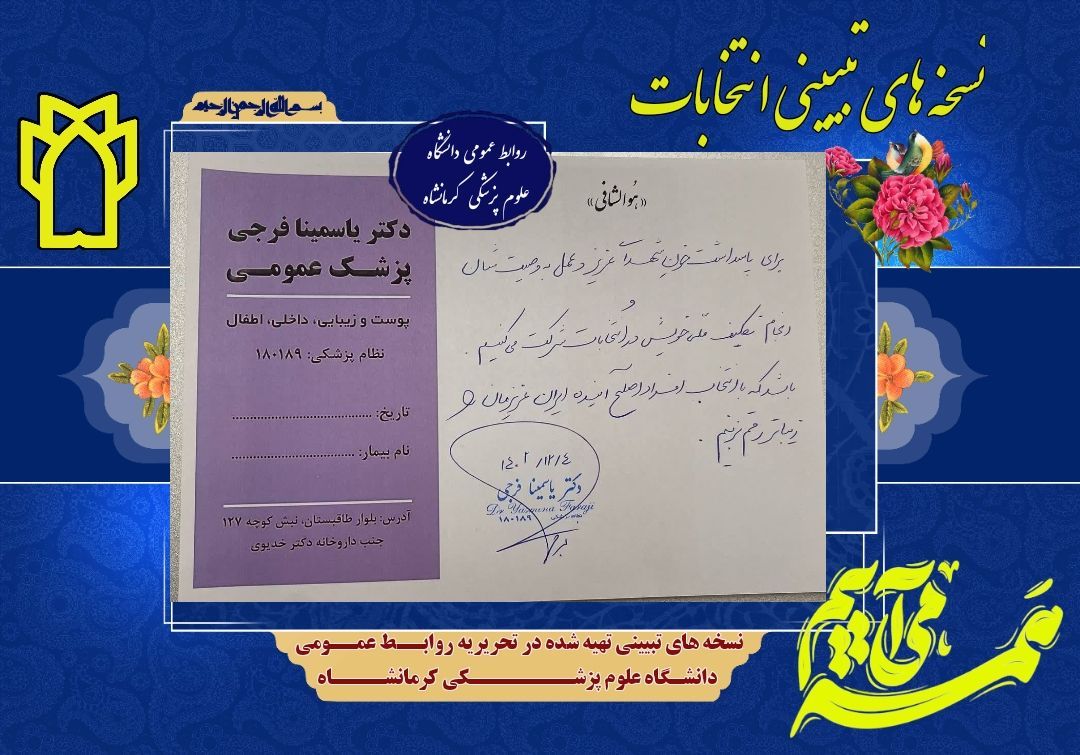 نسخه های تبیینی انتخابات
بسم الله الرحمن الرحیم
روابط عمومی دانشگاه
علوم پزشکی کرمانشاه
«هُوالشافی»
دکتر یاسمینا فرجی
پزشک عمومی
پوست و زیبایی، داخلی، اطفال
نظام پزشکی: ۱۸۰۱۸۹
تاریخ: ......................................
نام بیمار: ..................................
آدرس: بلوار طاقبستان، نبش کوچه ۱۲۷
جنب داروخانه دکتر خدیوی
برای پاسداشت خون شهدای عزیز و عمل به وصیت شان
و
انجام تکلیف ملی خویش در انتخابات شرکت می کنیم.
باشد که با انتخاب افراد اصلح آینده ایران عزیزمان را
زیباتر رقم بزنیم.
۱۴۰۲/۱۲/۴
دکتر یاسمینا فرجی
Dr Yasmina Faraji
۱۸۰۱۸۹
همه می آییم
نسخه های تبیینی تهیه شده در تحریریه روابط عمومی
دانشگاه علوم پزشکی کرمانشاه